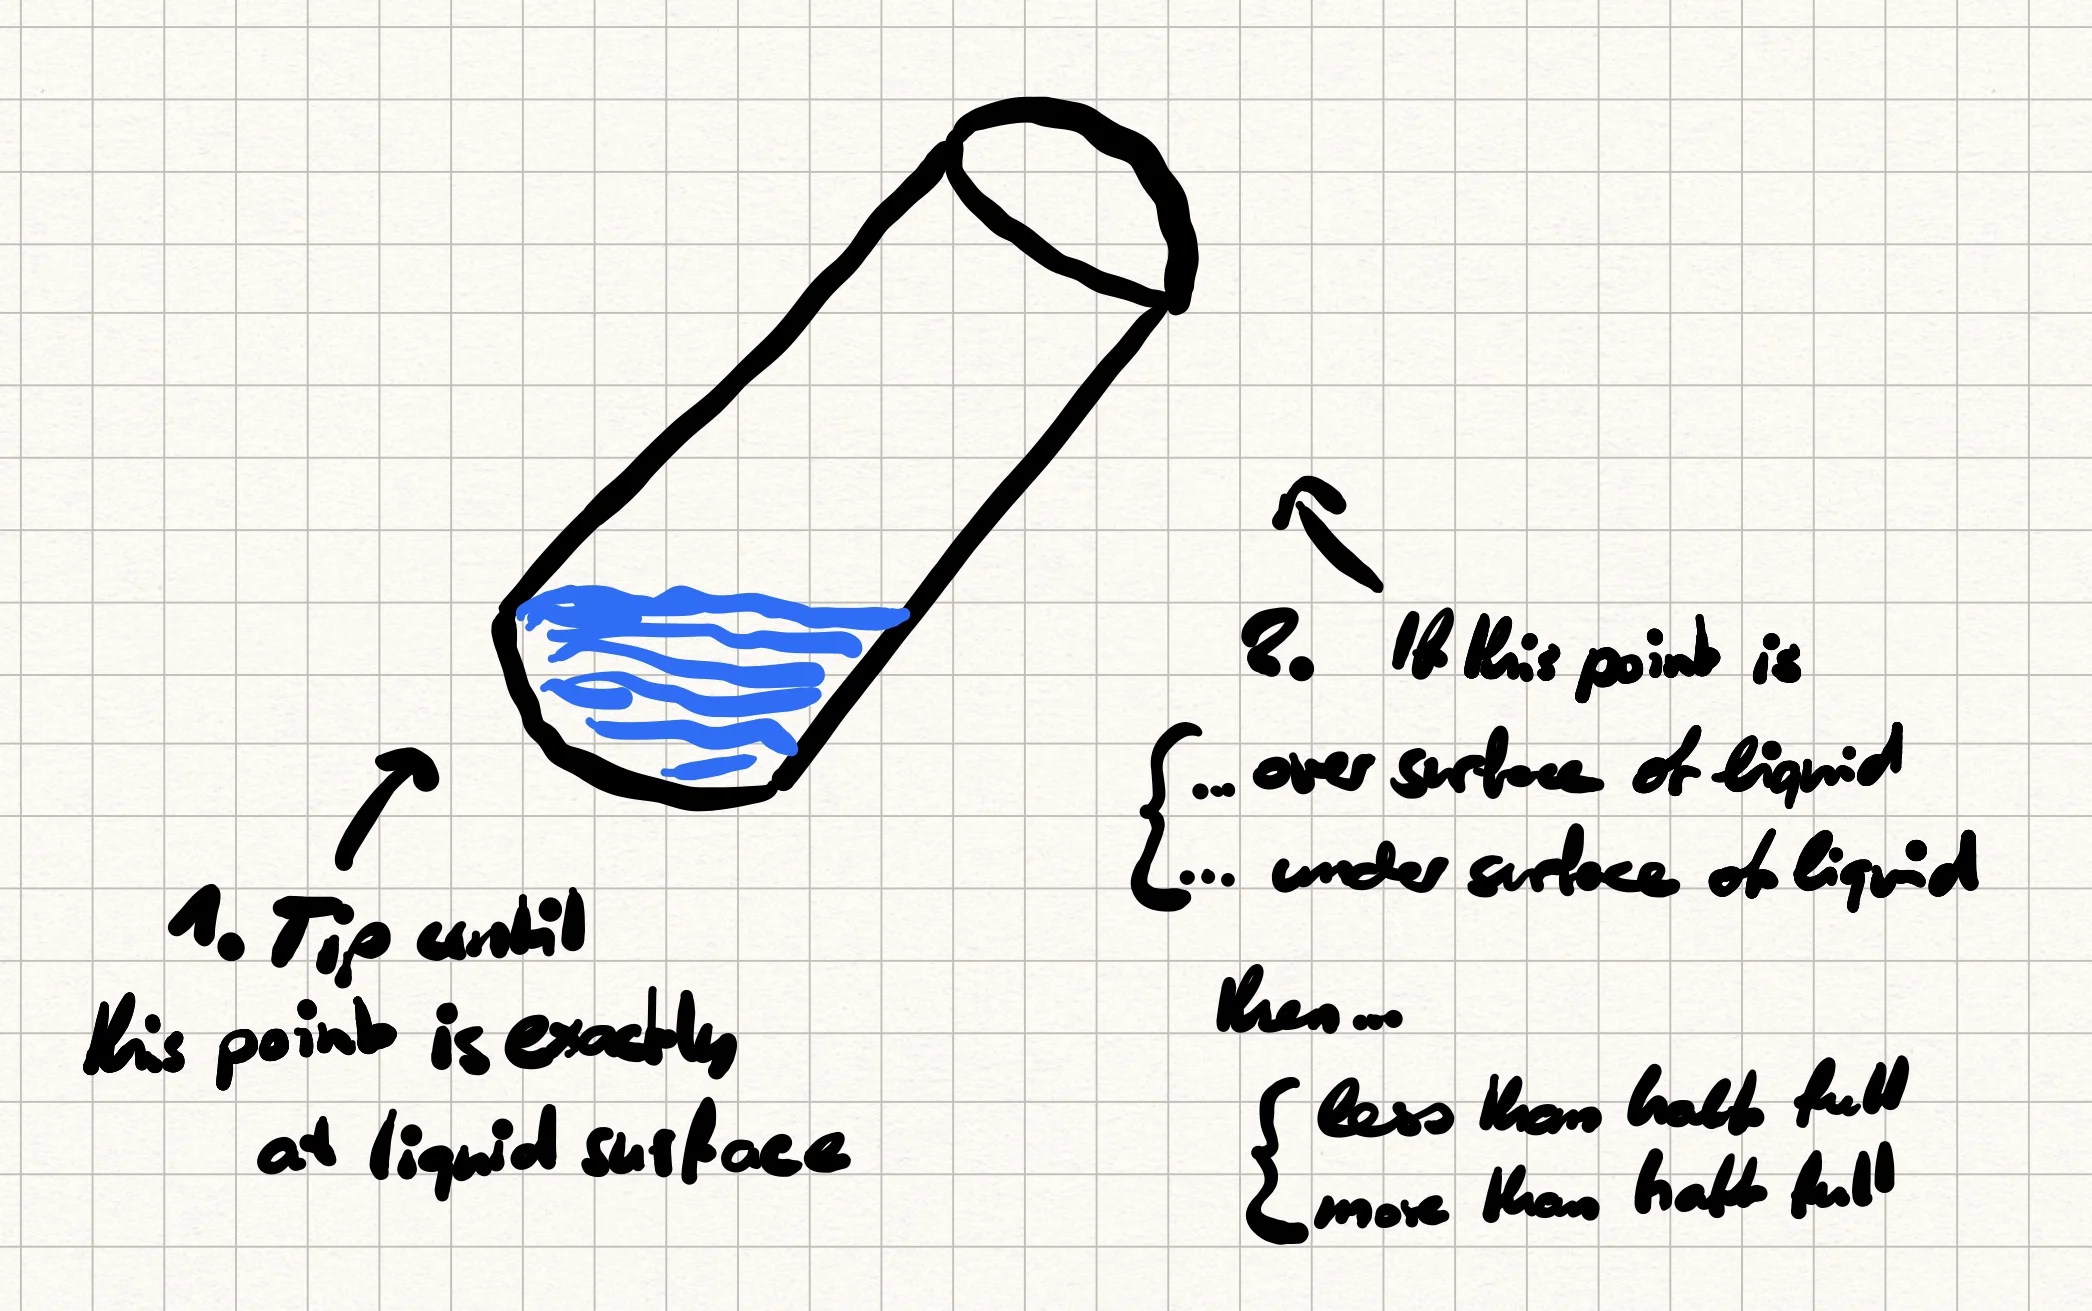 1. Tip until
this point is exactly
at liquid surface
2. If this point is
... over surface of liquid
... under surface of liquid
then...
less than half full
more than half full